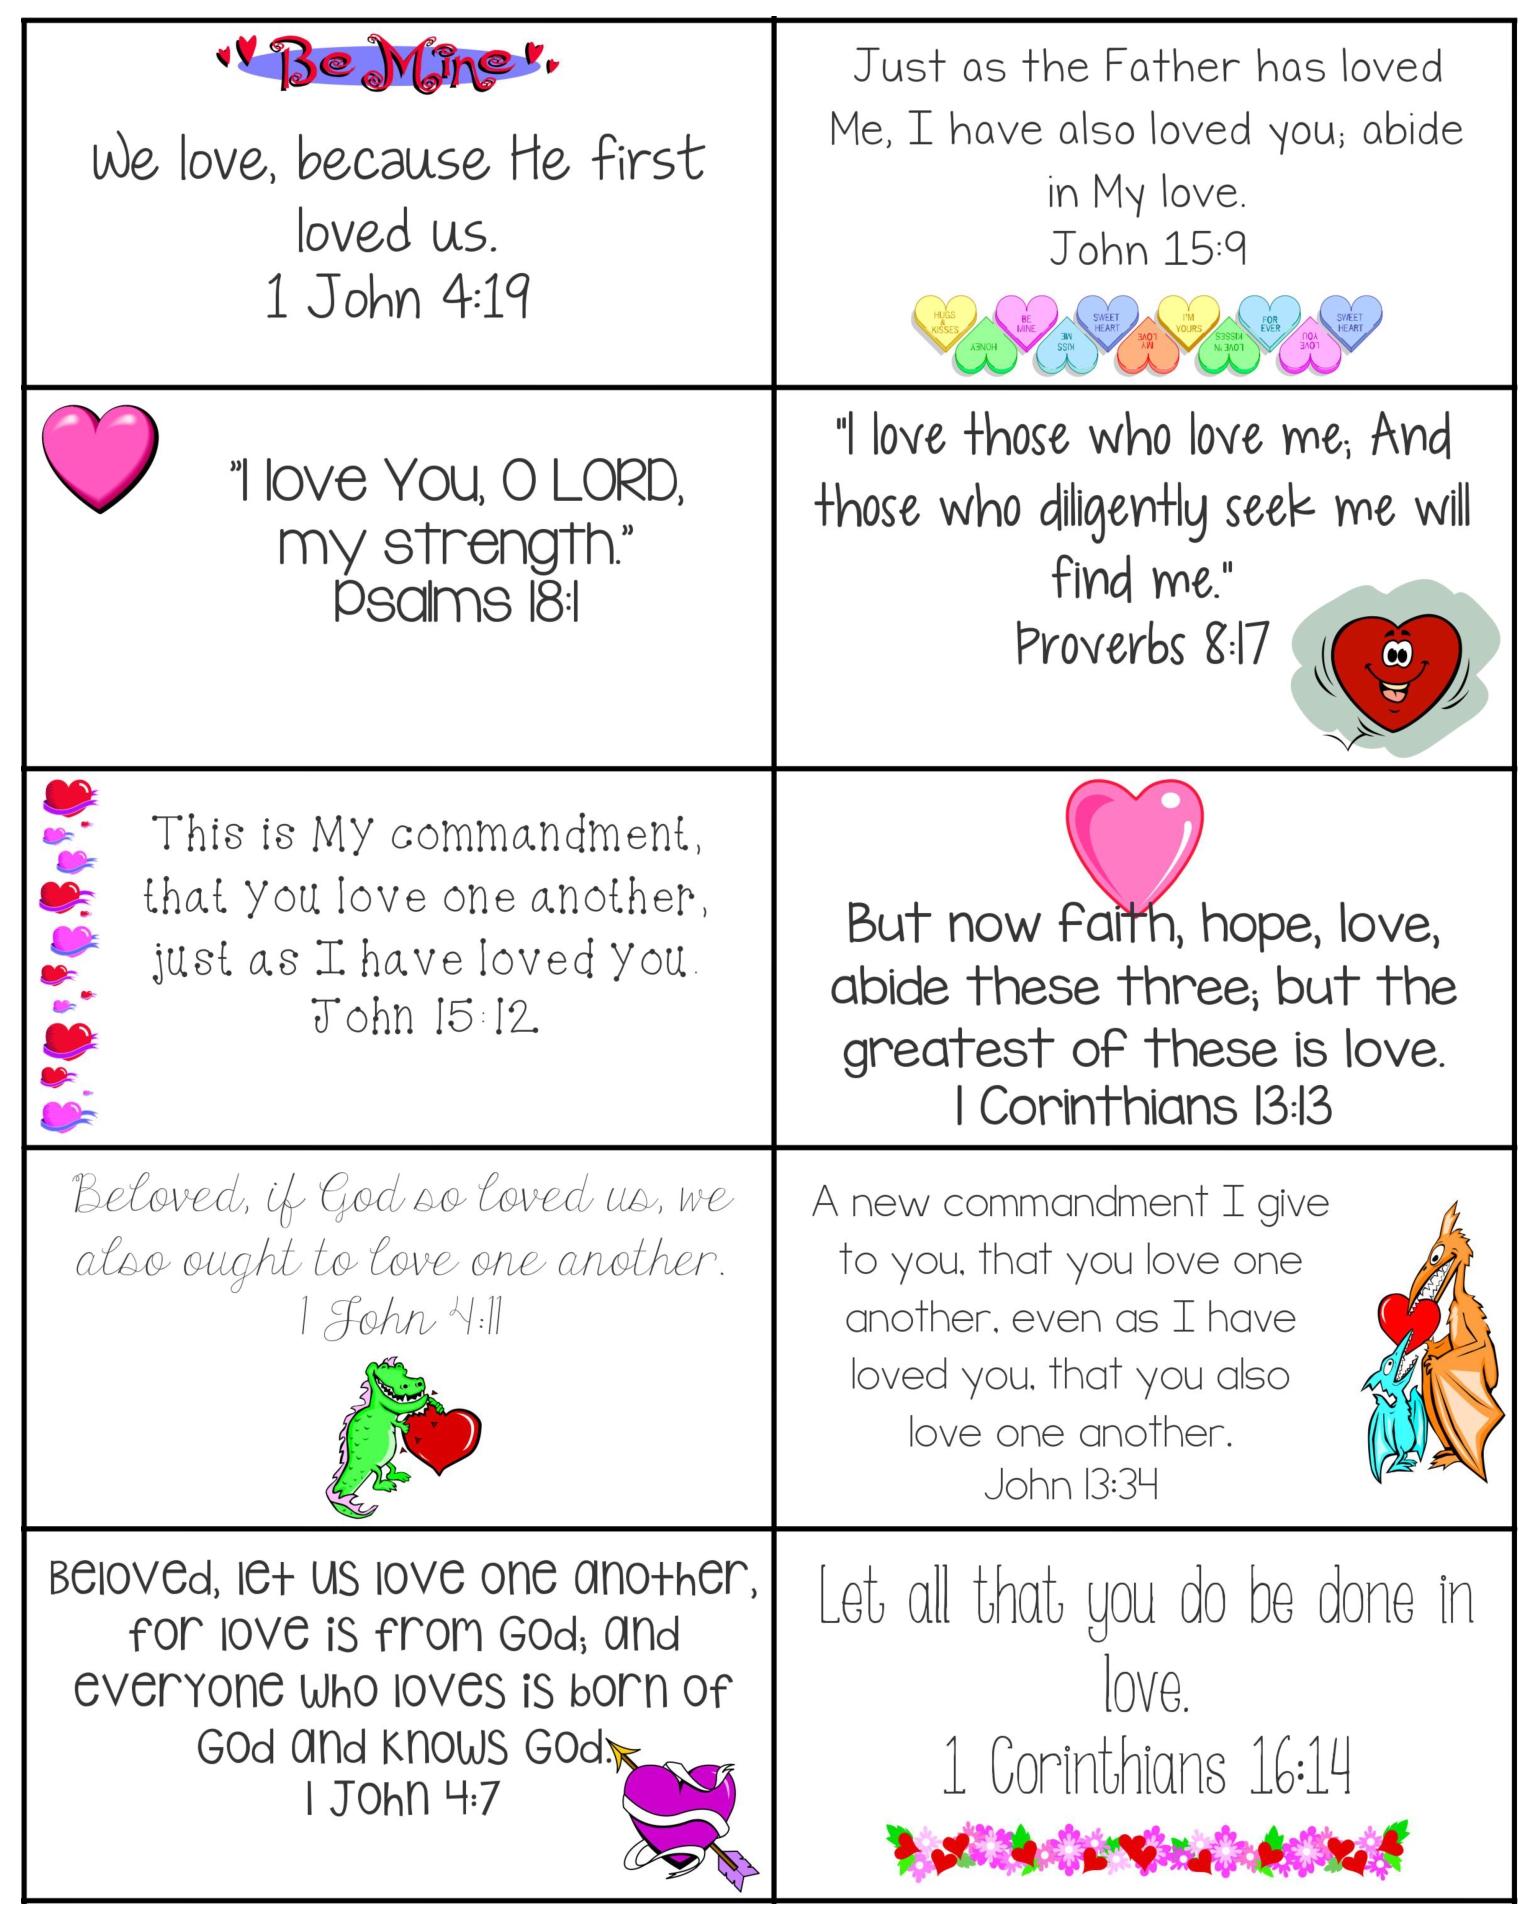 Be Mine
We love, because He first
loved us.
1 John 4:19
Just as the Father has loved
Me, I have also loved you; abide
in My love.
John 15:9
HUGS
&
KISSES
BE
MINE
SWEET
HEART
I'M
YOURS
FOR
EVER
SWEET
HEART
HONEY
KISS
ME
MY
LOVE
LOVE'N
KISSES
LOVE
YOU
"I love You, O LORD,
my strength."
Psalms 18:1
"I love those who love me; And
those who diligently seek me will
find me."
Proverbs 8:17
This is My commandment,
that you love one another,
just as I have loved you.
John 15:12
But now faith, hope, love,
abide these three; but the
greatest of these is love.
1 Corinthians 13:13
Beloved, if God so loved us, we
also ought to love one another.
1 John 4:11
A new commandment I give
to you, that you love one
another, even as I have
loved you, that you also
love one another.
John 13:34
Beloved, let us love one another,
for love is from God; and
everyone who loves is born of
God and knows God.
1 John 4:7
Let all that you do be done in
love.
1 Corinthians 16:14